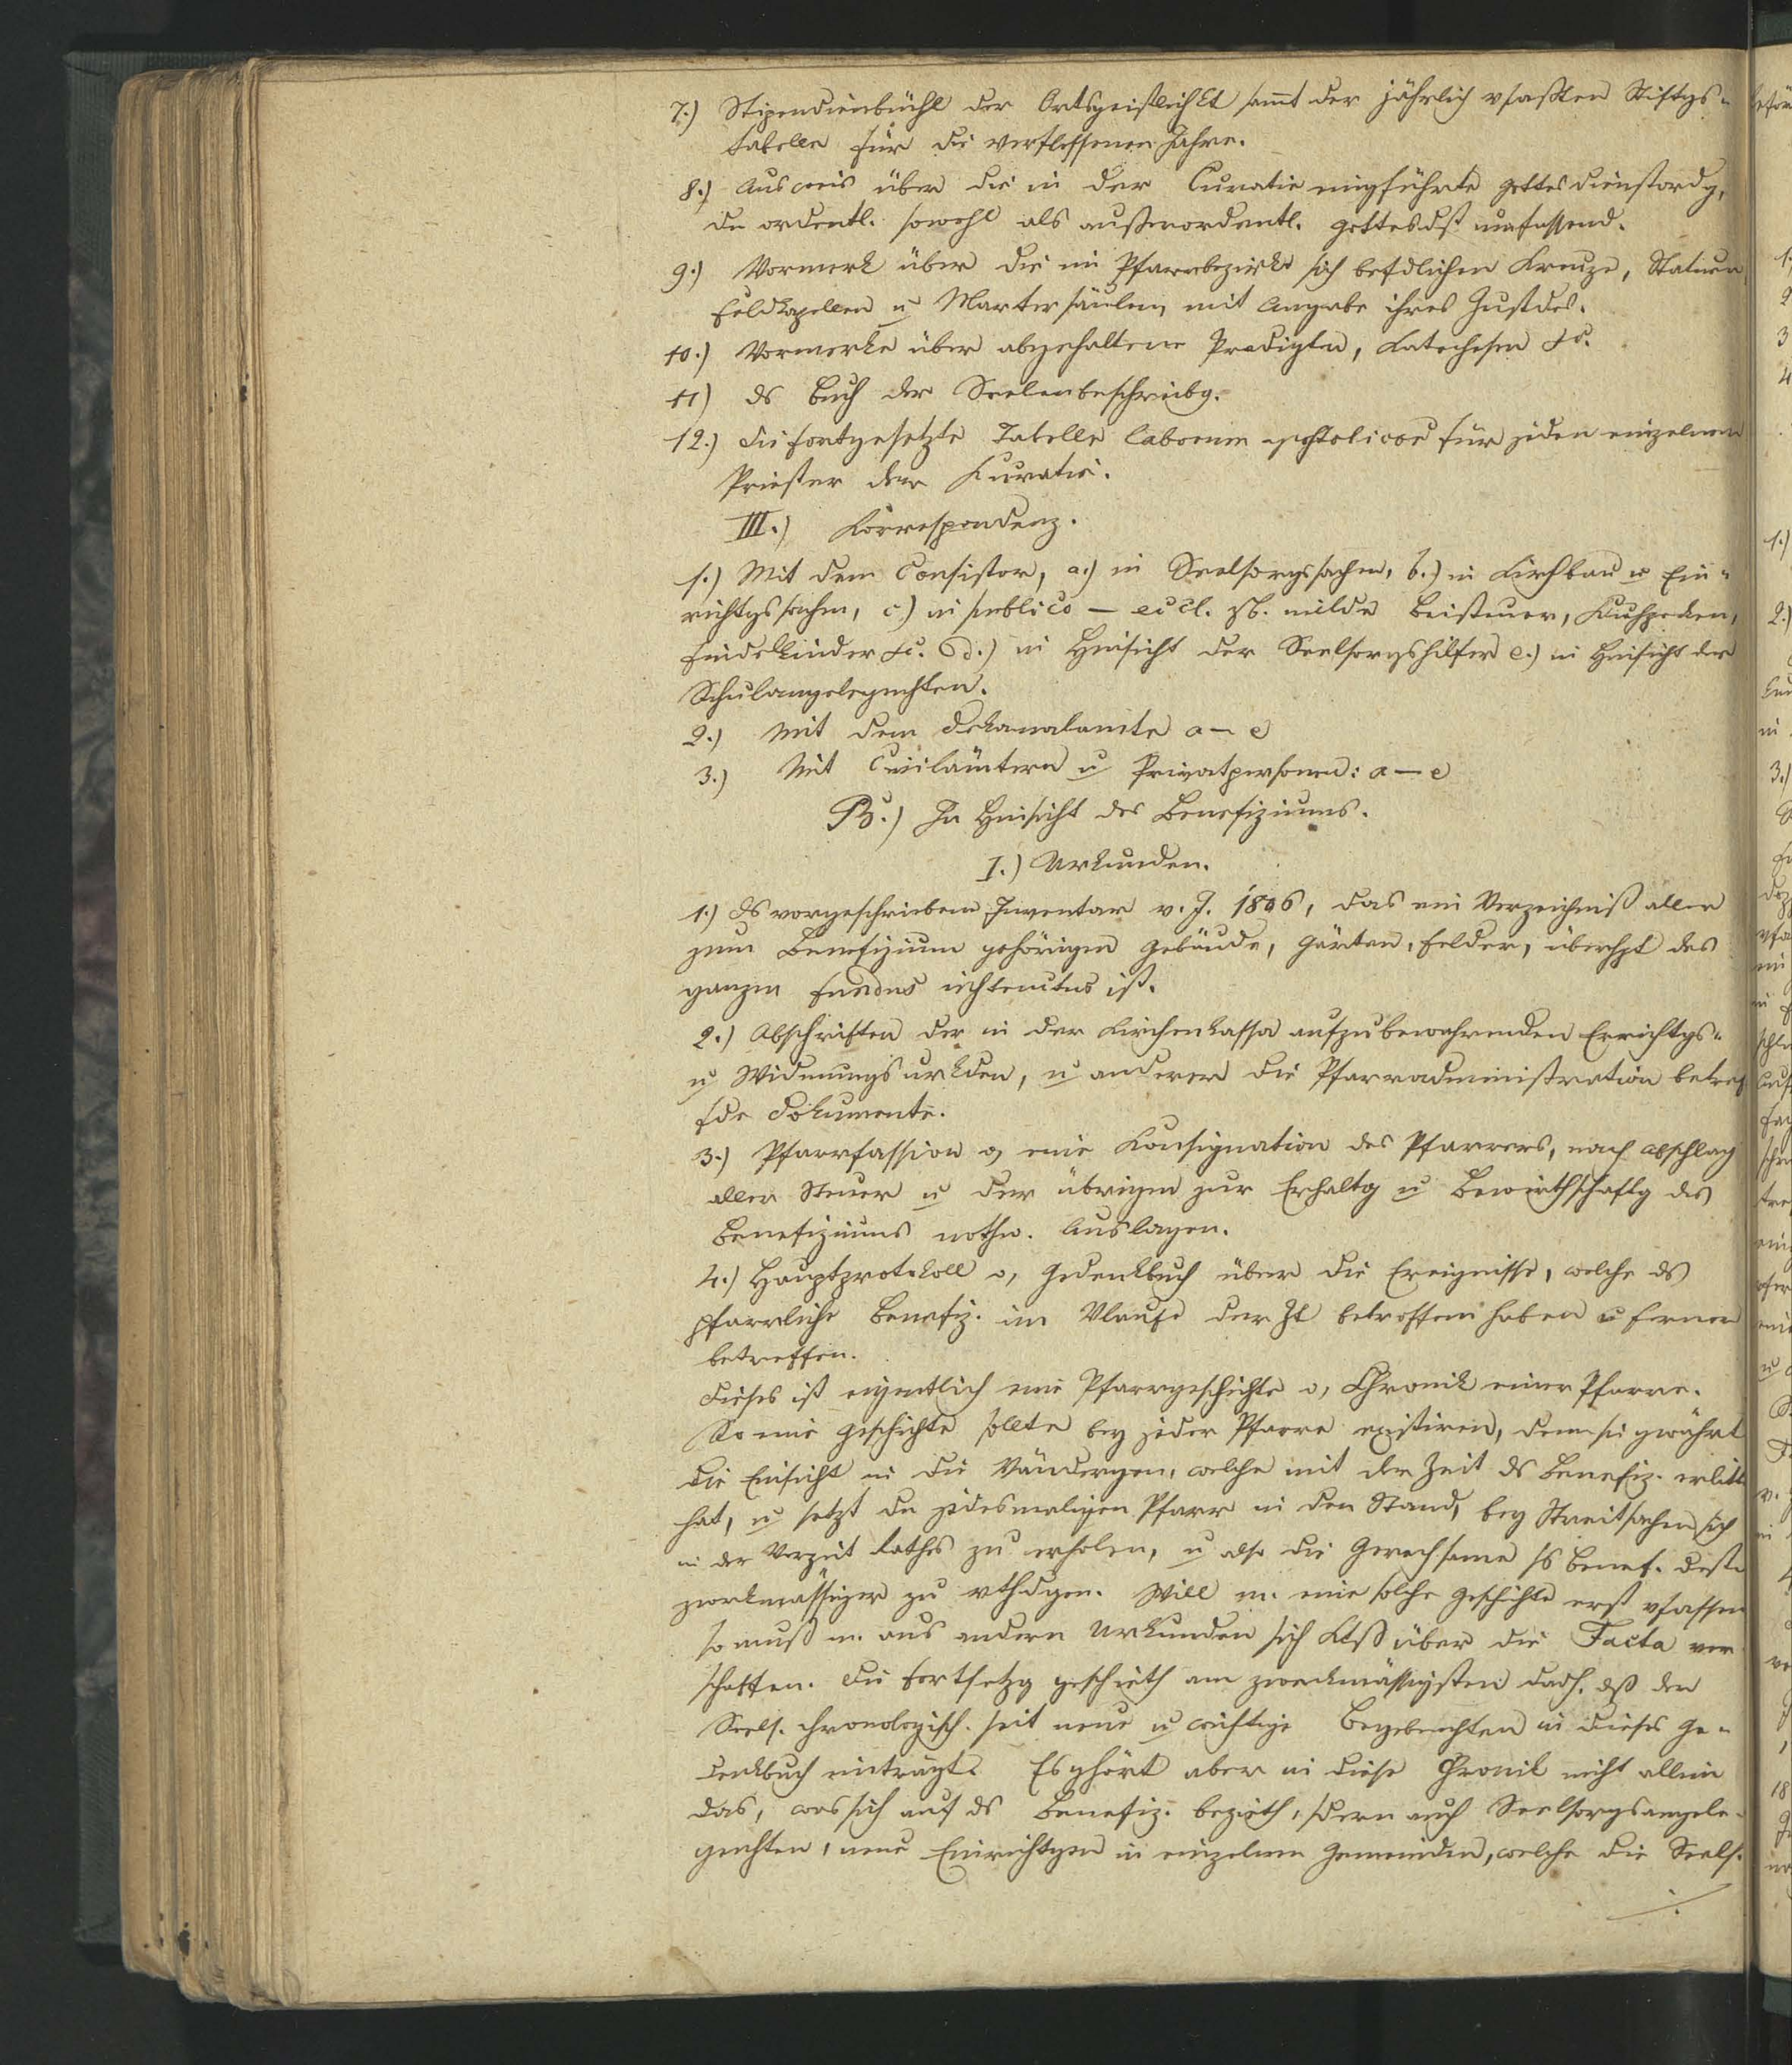 7.) Stipendienbüchl der Ortsgeistlichkt sammt der jährlich vfaßten Stiftgs-
tabelle für die verflossenen Jahre.
8.) Ausweis über die in der Curatie eingeführte Gottesdienstordg,
die ordentl. sowohl als außerordentl. Gottesdst umfassend.
9.) Vormerk über die im Pfarrbezirke sich befdlichen Kreuze, Statuen
Feldkapellen u Martersäulen, mit Angabe ihres Zustdes.
10.) Vormerke über abgehaltene Predigten, Katechesen etc.
11) ds Buch der Seelenbeschreibg.
12.) die fortgesetzte Tabelle laborum apostolicor für jeden einzelnen
Priester der Kuratie.
III.) Korrespondenz.
1.) Mit dem Consistor, a.) in Seelsorgssachen, b.) in Kirchbau u Ein-
richtgssachen, c.) in publico — eccl. zb. milde Beisteuer, Kuhpocken,
Findelkinder etc. d.) in Hinsicht der Seelsorgshilfer e.) in Hinsicht der
Schulangelegenhten.
2.) Mit dem Dekanalamte a — e
3.) Mit Civilämtern u Privatpersonen: a — e
B.) In Hinsicht des Benefiziums.
I.) Urkunden.
1.) Ds vorgeschriebene Inventar v. J. 1806, das ein Verzeichniß aller
zum Benefizium gehörigen Gebäude, Gärten, Felder, überhpt des
ganzen Fundus instructus ist.
2.) Abschriften der in der Kirchenkassa aufzubewahrenden Errichtgs-
u Widmungsurkden, u anderer die Pfarradministration betref
fde Dokumente.
3.) Pfarrfassion o, eine Konsignation des Pfarrers, nach Abschlag
aller Steuer u der übrigen zur Erhaltg u Bewirthschaftg des
Benefiziums nothw. Auslagen.
4.) Hauptprotokoll o, Gedenkbuch über die Ereignisse, welche ds
pfarrliche Benefiz. im Vlaufe der Zt betroffen haben u ferner
betreffen.
Dieses ist eigentlich eine Pfarrgeschichte o, Chronik einer Pfarre.
So eine Geschichte sollte bey jeder Pfarre existiren, denn sie gewährt
die Einsicht in die Vändergen, welche mit der Zeit ds Benefiz. erlitt
hat, u setzt den jedesmaligen Pfarr in den Stand, bey Streitsachen sich
in der Vorzeit Rathes zu erholen, u also die Gerechsame ss Benef. desto
zweckmässiger zu vthdigen. Will m. eine solche Geschichte erst vfassen
so muß m. aus andern Urkunden sich Ktß über die Facta ver
schaffen. Die Fortsetzg geschieht am zweckmässigsten dadh. dß der
Seels. chronologisch. seit neue u wichtige Begebenhten in dieses Ge-
denkbuch einträgt. Es gehört aber in diese Chronik nicht allein
das, was sich auf ds Benefiz. bezieht, sdern auch Seelsorgsangele-
genhten, neue Einrichtgen in einzelnen Gemeinden, welche die Seels.